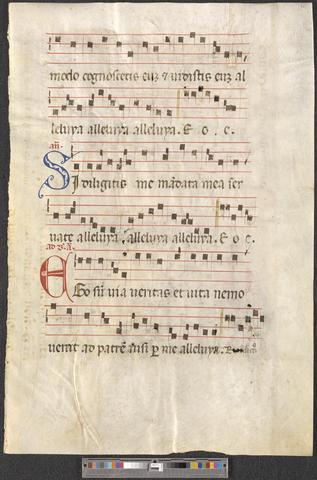 modo cognoscetis euʒ ⁊ vidistis euʒ al
leluya alleluya alleluya. E o . e.
añ.
Si diligitis me mãdata mea ser
vate alleluya, alleluya alleluya. E o e.
Ego sũ via veritas et vita nemo
venit ad patrẽ nisi p me alleluya.